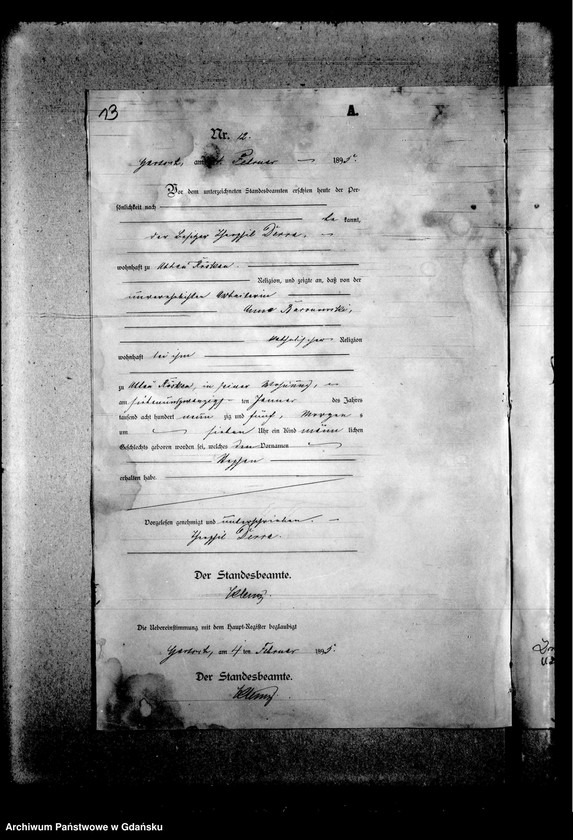 13
A.
Nr. 12.
am 4 Februar 1895
Vor dem unterzeichneten Standesbeamten erschien heute der Per-
sönlichkeit nach
be kannt,
der Besitzer Theophil Derra,
wohnhaft zu
Religion, und zeigte an, daß von der
unverehelichten Arbeiterin
katholischer Religion
wohnhaft bei ihm
zu in seiner Wohnung,
am siebenundzwanzigsten Januar des Jahres
tausend acht hundert neun zig und fünf, Morgens
um sieben Uhr ein Kind männ lichen
Geschlechts geboren worden sei, welches den Vornamen
erhalten habe.
Vorgelesen genehmigt und unterschrieben.
Theophil Derra.
Der Standesbeamte.
Die Uebereinstimmung mit dem Haupt-Register beglaubigt
am 4 ten Februar 1895
Der Standesbeamte.
Archiwum Państwowe w Gdańsku